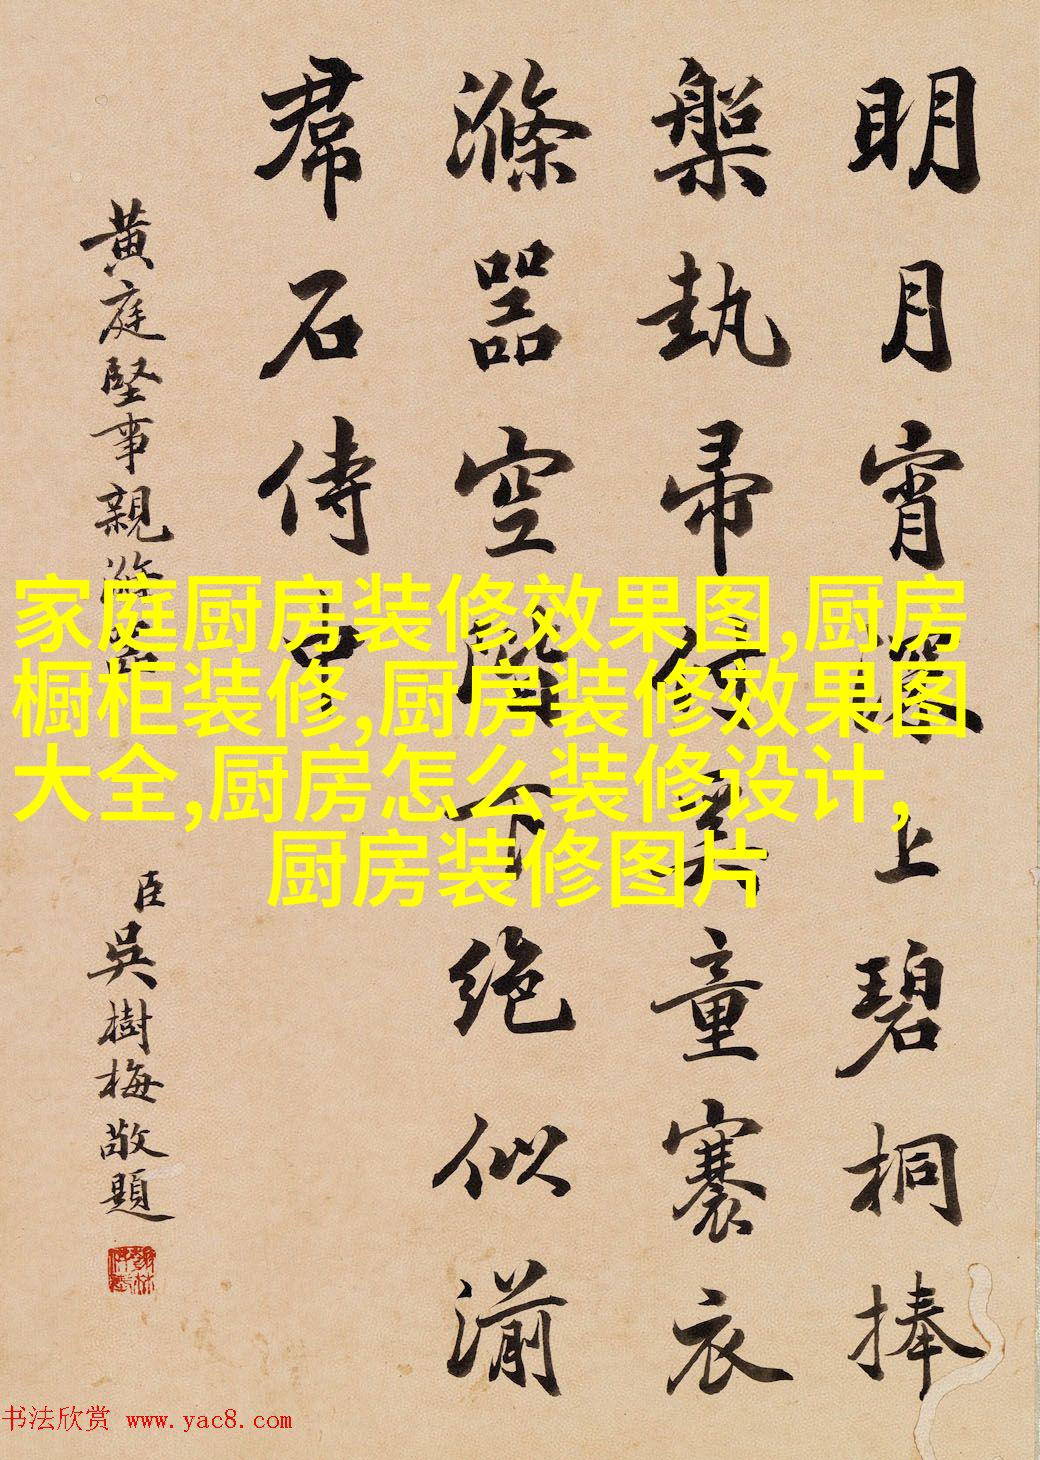 明月宵上碧桐捧
槃執帚奚童褰衣
滌器空階下絶似湔
帬石侍中
黃庭堅事親滌器
臣吳樹梅敬題
家庭厨房装修效果图,厨房
橱柜装修,厨房装修效果图
大全,厨房怎么装修设计,
厨房装修图片
书法欣赏 www.yac8.com